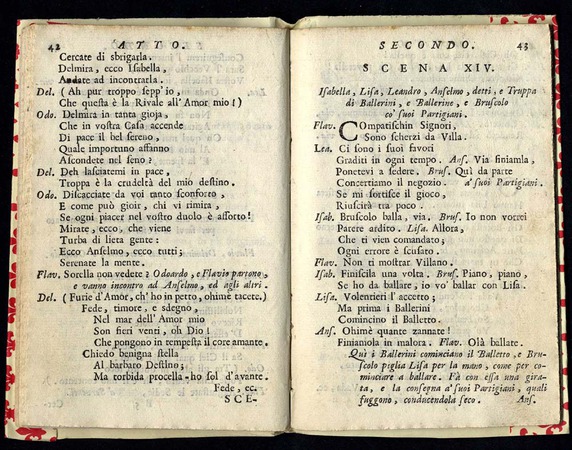 42 ATTO.
Cercate di sbrigarla.
Delmira, ecco Isabella,
Andate ad incontrarla.
Del. ( Ah pur troppo seppi'io,
Che questa è la Rivale all' Amor mio! )
Odo. Delmira in tanta gioja,
Che in vostra Casa accende
Di pace il bel sereno,
Quale importuno affanno
Ascondete nel seno?
Del. Deh lasciatemi in pace,
Troppa è la crudeltà del mio destino.
Odo. Discacciate da voi tanto sconforto,
E come può gioir, chi vi rimira,
Se ogni piacer nel vostro duolo è assorto!
Mirate, ecco, che viene
Turba di lieta gente:
Ecco Anselmo, ecco tutti;
Serenate la mente.
Flav. Sorella non vedete? Odoardo, e Flavio partono,
e vanno incontro ad Anselmo, ed agli altri.
Del. ( Furie d'Amor, ch' ho in petto, ohimè tacete.)
Fede, timore, e sdegno,
Nel mar dell' Amor mio
Son fieri venti, oh Dio!
Che pongono in tempesta il core amante.
Chiedo benigna stella
Al barbaro Destino;
Ma torbida procella ho sol d'avante.
Fede, ec.
SCE-
SECONDO. 43
SCENA XIV.
Isabella, Lisa, Leandro, Anselmo, detti, e Truppa
di Ballerini, e Ballerine, e Bruscolo
co' suoi Partigiani.
Flav. COmpatischin Signori,
Sono scherzi da Villa.
Lea. Ci sono i suoi favori
Graditi in ogni tempo. Ans. Via finiamla,
Ponetevi a sedere. Brus. Quì da parte
Concertiamo il negozio. a' suoi Partigiani.
Se mi sortisce il gioco,
Riuscirà tra poco.
Isab. Bruscolo balla, via. Brus. Io non vorrei
Parere ardito. Lisa. Allora,
Che ti vien comandato;
Ogni errore è scusato.
Flav. Non ti mostrar Villano.
Isab. Finiscila una volta. Brus. Piano, piano,
Se ho da ballare, io vo' ballar con Lisa.
Lisa. Volentieri l'accetto;
Ma prima i Ballerini
Comincino il Balletto.
Ans. Ohimè quante zannate!
Finianiola in malora. Flav. Olà ballate.
Quì i Ballerini cominciano il Balletto, e Bru-
scolo piglia Lisa per la mano, come per co-
minciare a ballare. Fà con essa una gira-
ta, e la consegna a' suoi Partigiani, quali
fuggono, conducendola seco. Ans.